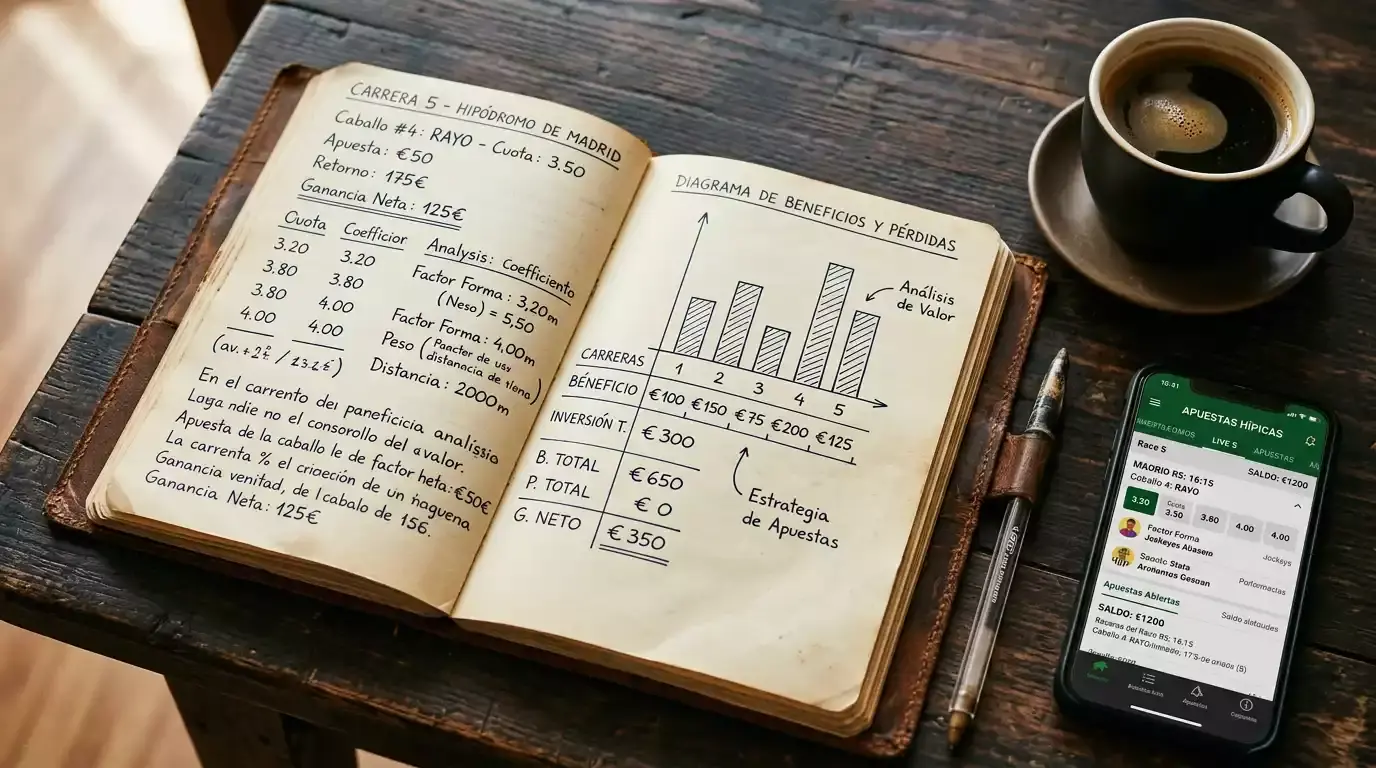 CARRERA 5 - HIPÓDROMO DE MADRID
Caballo #4: RAYO - Cuota: 3.50
Apuesta: €50
Retorno: 175€
Ganancia Neta: 125€
Cuota Coefficior Analysis: Coefficiento
3.20 3.20 Factor Forma: 3,20m
3.80 3.80 (Neso) = 5,50
3.80 4.00 Factor Forma: 4,00m
4.00 4.00 Peso
distancia de
Distancia: 2000m
En el carrento del paneficicia analissio
Loga ndie no el consorollo del avalor.
Apuesta de la caballo le de factor heta: €50€
La carrenta % el crioeción de un naguena
Ganancia venitad, de l cabalo de 15€.
Ganancia Neta: 125€
DIAGRAMA DE BENEFICIOS Y PÉRDIDAS
Análisis
de Valor
CARRERAS 1 2 3 4 5
BÉNEFICIO €100 €150 €75 €200 €125
INVERSIÓN T. €300
B. TOTAL €650
P. TOTAL €0
G. NETO €350
Estrategia
de Apuestas
APUESTAS HÍPICAS
LIVE S APUESTAS
Race S SALDO: €1200
MAORIO RS: 16:1S
Cobollo 4: RAYO
3.30 3.50 3.60 4.00 4.00
Factor Forma
Joskeyes Abasero Jockeys
Saooto Stata
Aronamos Gesoan
Apuestas Abiertas
SALDO: €1200 Saldo